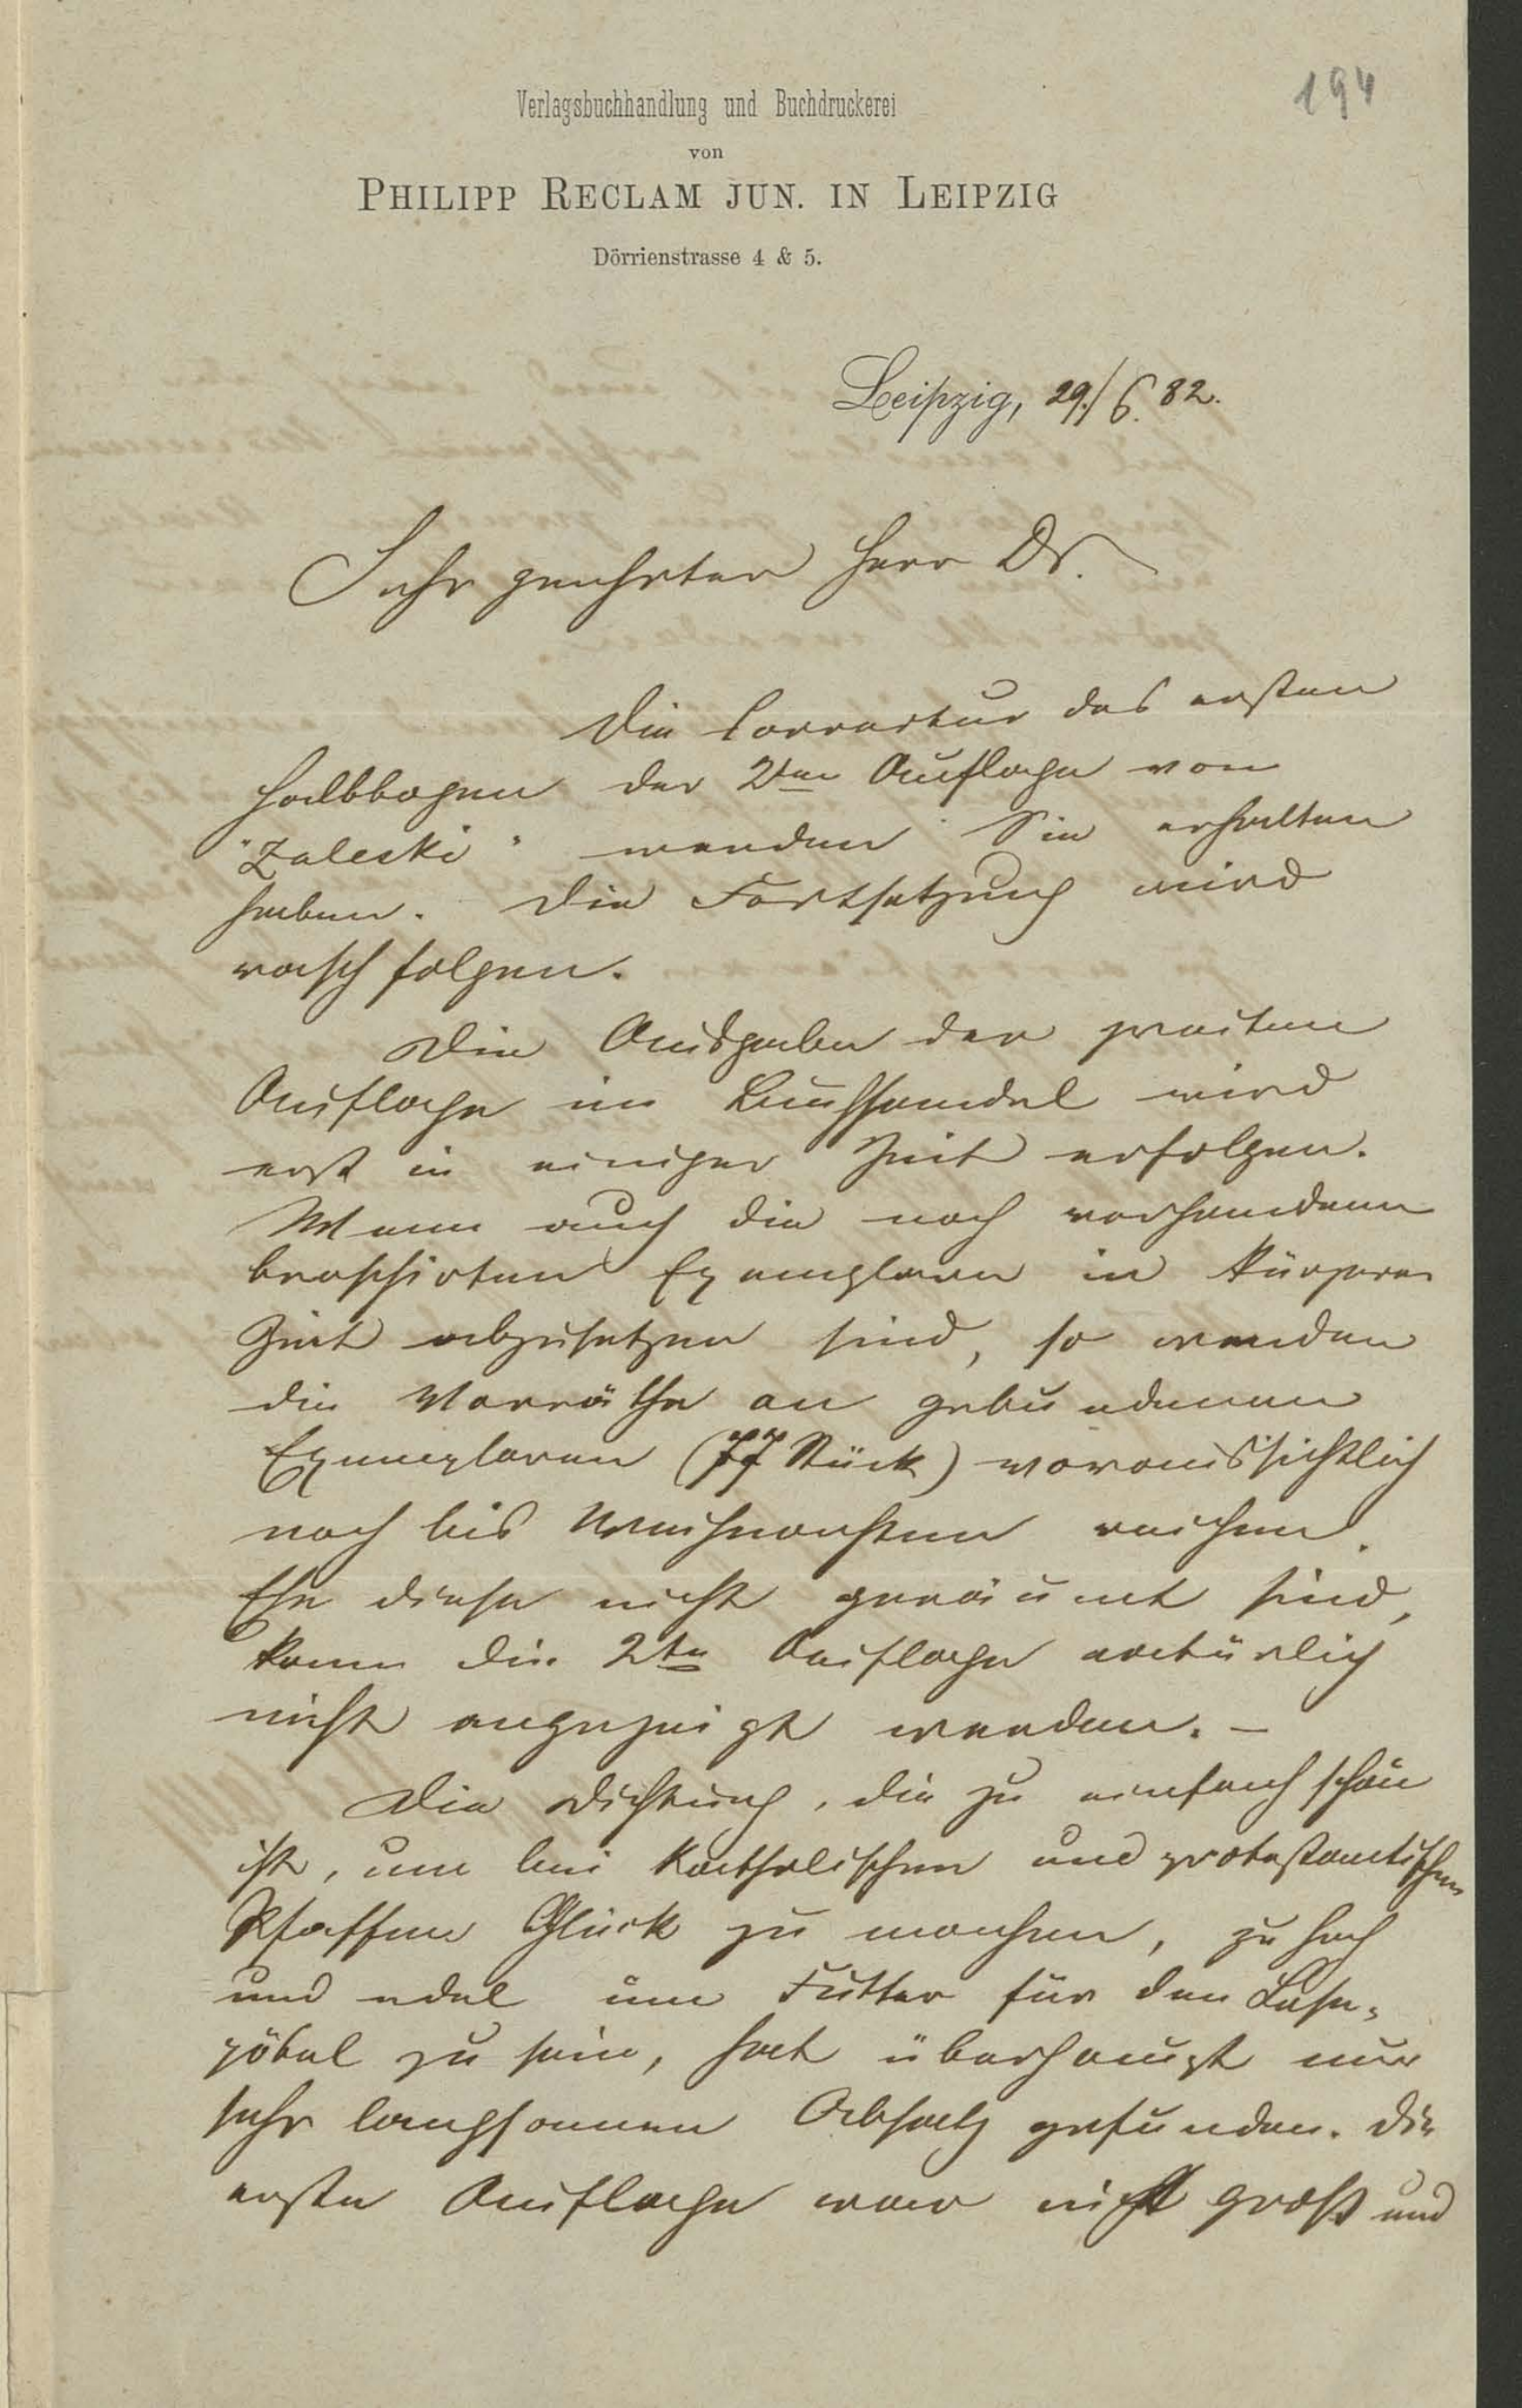 194
Verlagsbuchhandlung und Buchdruckerei
von
PHILIPP RECLAM JUN. IN LEIPZIG
Dörrienstrasse 4 & 5.
Leipzig, 29./6. 82.
Sehr geehrter Herr Dr.
Die Correctur des ersten
Halbbogen der 2ten Auflage von
"Zaleski" werden Sie erhalten
haben. Die Fortsetzung wird
rasch folgen.
Die Ausgabe der zweiten
Auflage im Buchhandel wird
erst in einiger Zeit erfolgen.
Wenn auch die noch vorhandenen
broschirten Exemplare in kürzerer
Zeit abzusetzen sind, so werden
die Vorräthe an gebundenen
Exemplaren (77 Stück) voraussichtlich
noch bis Weihnachten reichen.
Ehe diese nicht geräumt sind,
kann die 2te Auflage natürlich
nicht angezeigt werden. –
Die Dichtung, die zu einfach schön
ist, um bei katholischen und protestantischen
Pfaffen Glück zu machen, zu hoch
und edel um Futter für den Lese-
pöbel zu sein, hat überhaupt nur
sehr langsamen Absatz gefunden. Die
erste Auflage war nicht groß und